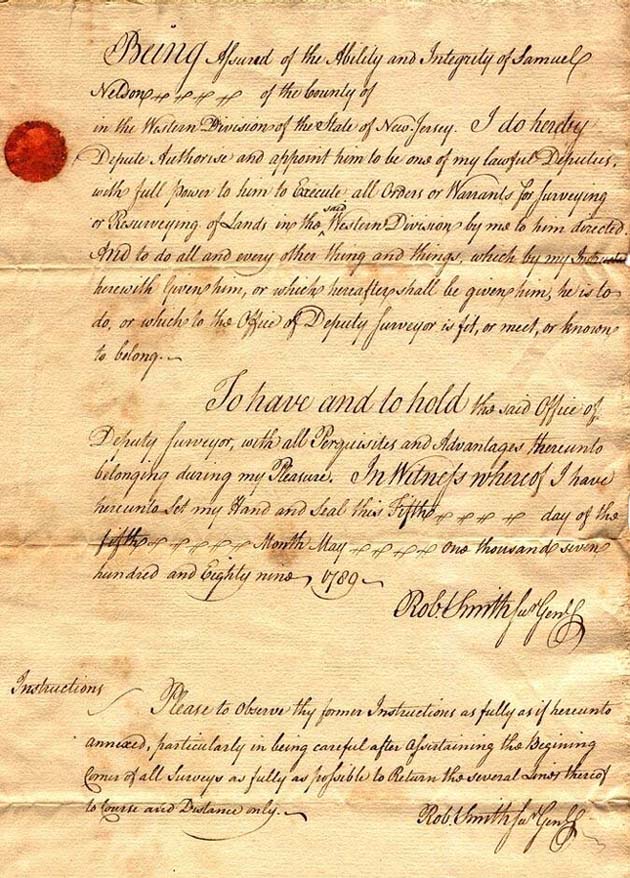 Being Assured of the Ability and Integrity of Samuel
Nelson of the County of
in the Western Division of the State of New Jersey. I do hereby
Depute Authorise and appoint him to be one of my lawful Deputies,
with full Power to him to Execute all Orders or Warrants for Surveying
or Resurveying of Lands in the said Western Division by me to him directed.
And to do all and every other thing and things, which by my
herewith Given him, or which hereafter shall be given him, he is to
do, or which to the Office of Deputy Surveyor is fit, or meet, or known
to belong.
To have and to hold the said Office of
Deputy Surveyor, with all Perquisites and Advantages thereunto
belonging during my Pleasure. In Witness whereof I have
hereunto Set my Hand and Seal this Fifth day of the
fifth Month May one thousand seven
hundred and Eighty nine 1789
Robt. Smith Sur. Genl.
Instructions
Please to Observe thy former Instructions as fully as if hereunto
annexed, particularly in being careful after Assirtaining the Begining
Corner of all Surveys as fully as possible to Return the several Lines thereof
to Course and Distance only.
Rob. Smith Sur. Genl.